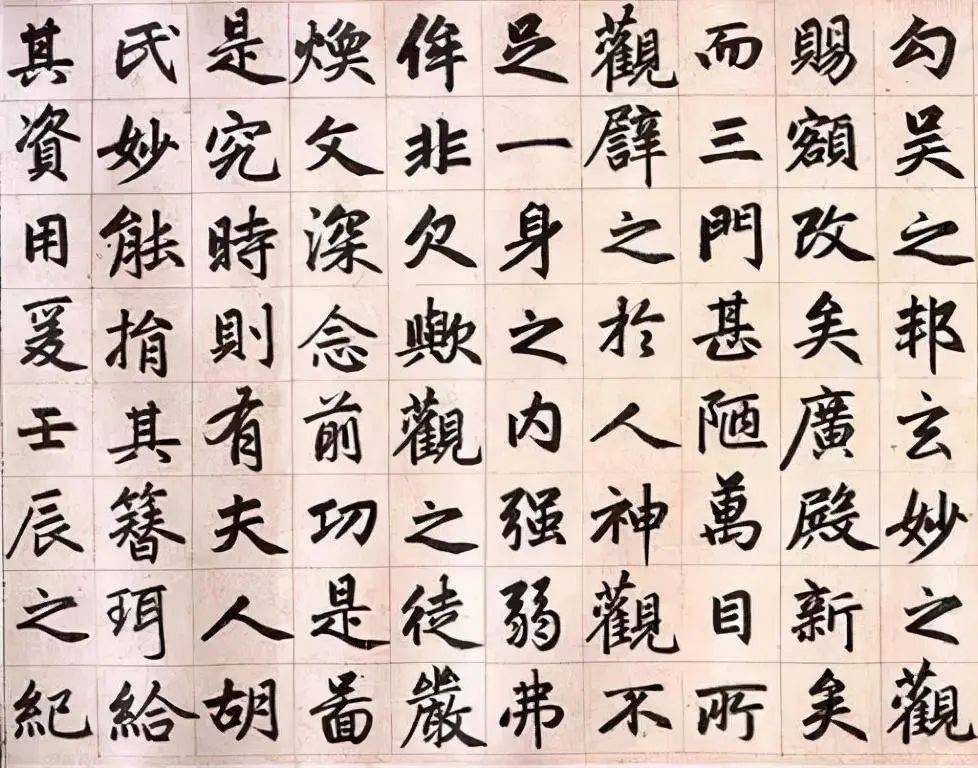 勾吴之邦玄妙之觀
賜額改矣廣殿新矣
而三門甚陋萬目所
觀譬之於人神觀不
足一身之内强弱弗
侔非欠歟觀之徒嚴
煥文深念前功是啚
是究時則有夫人胡
氏妙能捐其簪珥給
其資用爰壬辰之紀